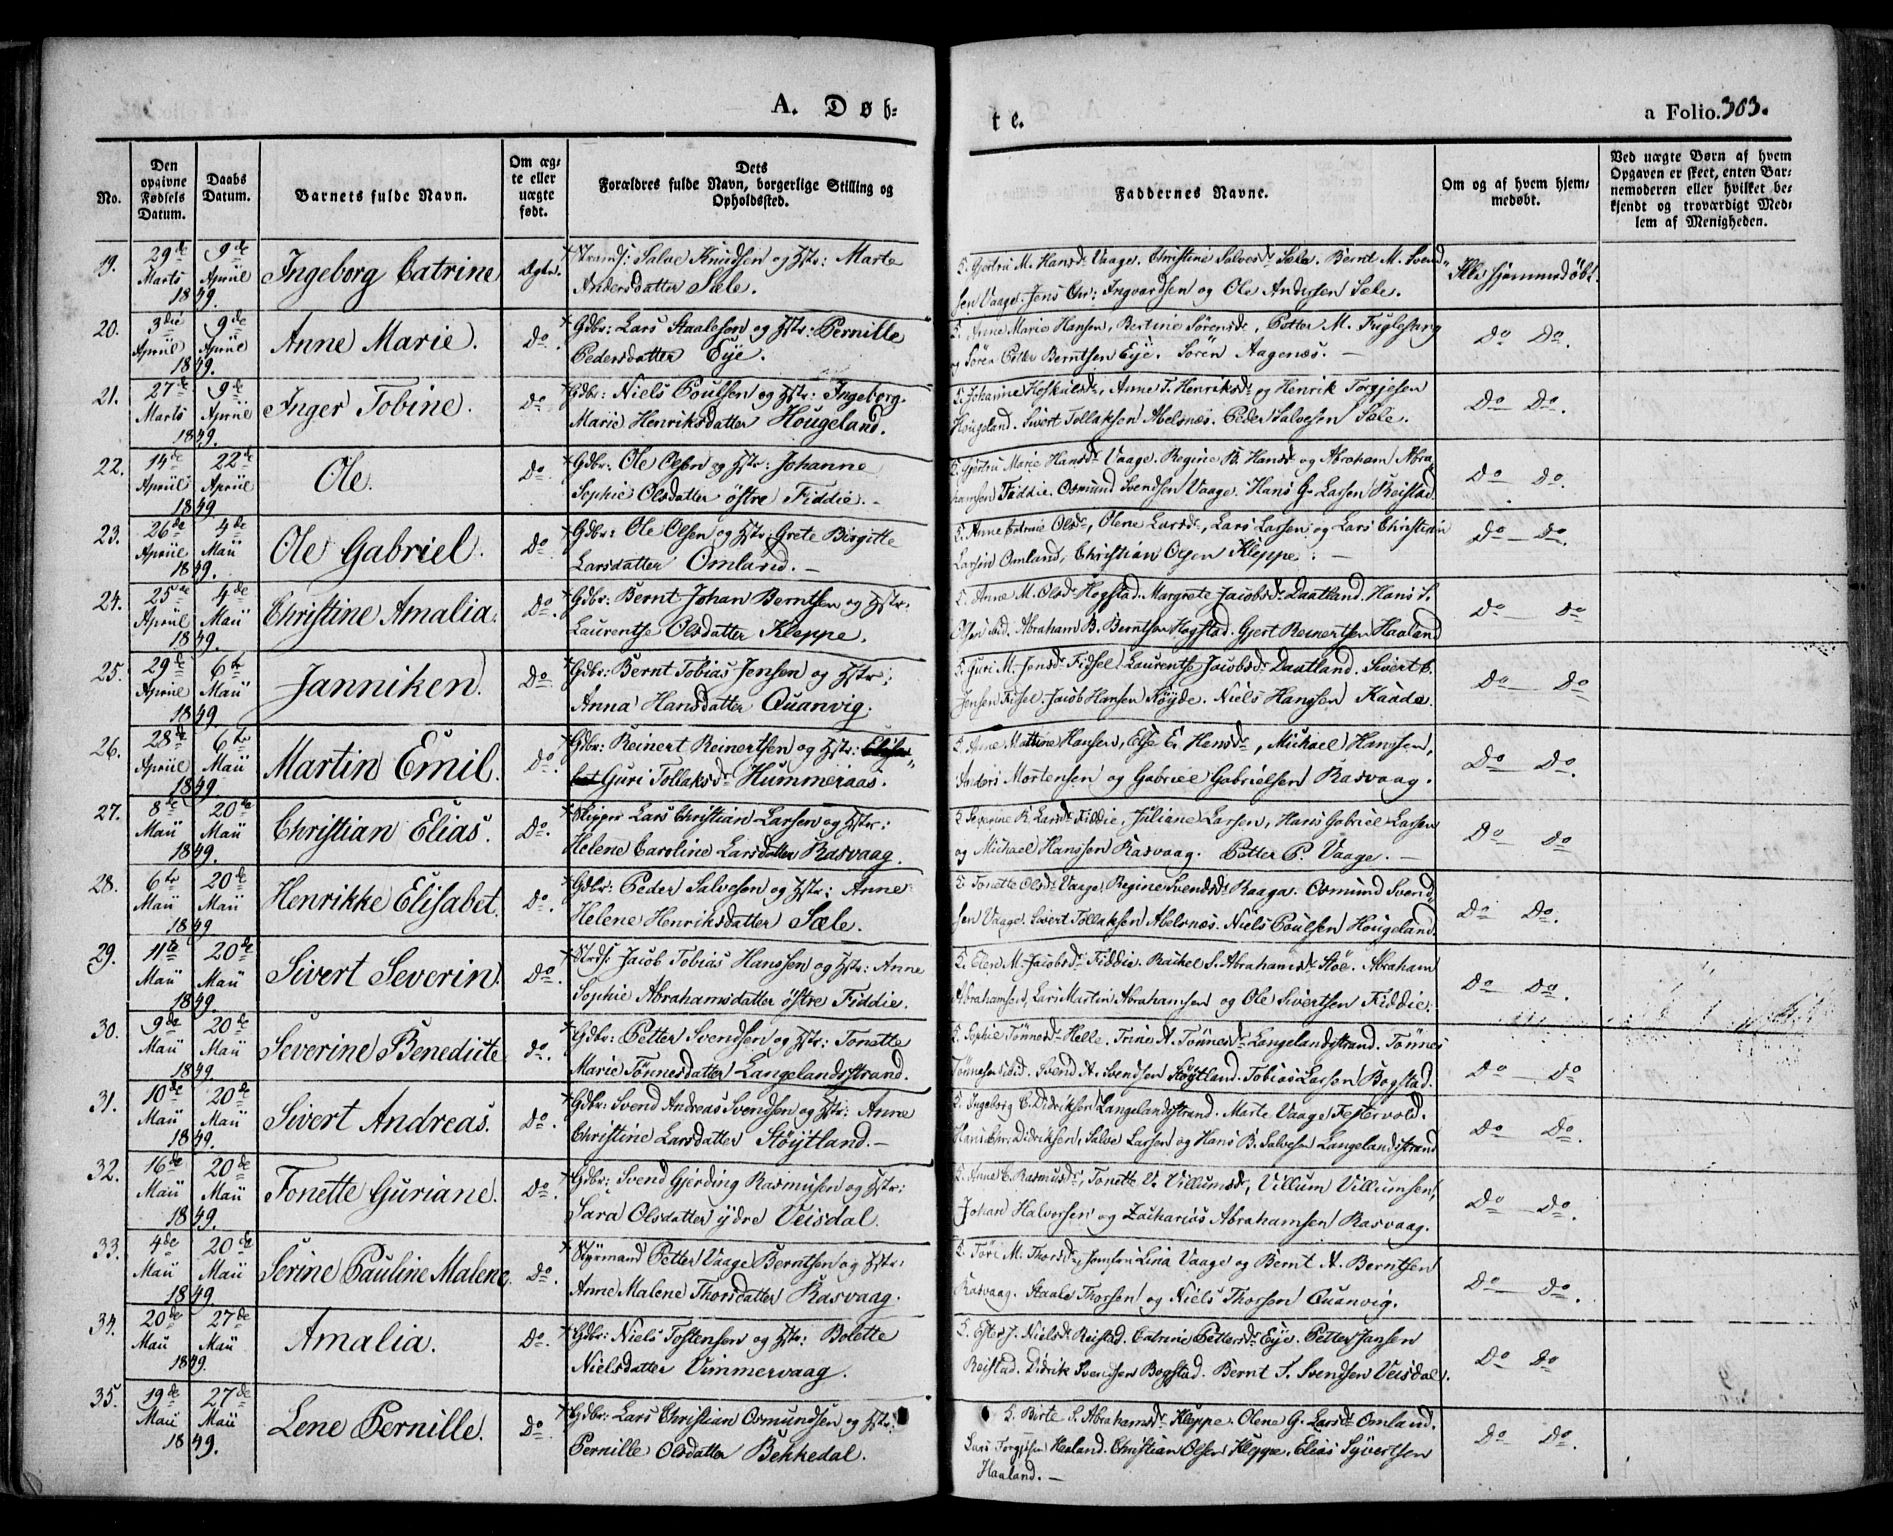 A. Døb=
te.
a Folio.303.
No.
Den opgivne Fødsels Datum.
Daabs Datum.
Barnets fulde Navn.
Om æg= te eller uægte født.
Dets Forældres fulde Navn, borgerlige Stilling og Opholdssted.
Faddernes Navne.
Om og af hvem hjem= medøbt.
Ved uægte Børn af hvem Opgaven er skeet, enten Bar= nemoderen eller hvilket be= kjendt og troværdigt Med= lem af Menigheden.
19. 29de Marts 1849. 9de Apriil Ingeborg Catrine Ægte. Strands: Salve Knudsen og Hstr: Marte
Andersdatter Sæle.
F. Gjertru M. Hansd. Vaage. Christine Salvesd. Sæle. Bernt M. Svend=
sen Vaage. Jens Chr: Ingvardsen og Ole Andersen Sæle.
Ikke hjemmedøbt.
20. 3die Apriil 1849. 9de Apriil Anne Marie. Do. Gdbr: Lars Staalesen og Hstr: Pernille
Pedersdatter Eÿe.
F. Anne Marie Hansen, Bertine Sörensd., Petter M. Fuglestang
og Sören Petter Berntsen Eÿe. Sören Aagenæs. –
Do Do.
21. 27de Marts 1849. 9de Apriil Inger Tobine. Do Gdbr: Niels Poulsen og Hstr: Ingeborg
Marie Henriksdatter Hougeland.
F. Johanne Heskulsd., Anne T. Henriksd. og Henrik Torgjesen
Hougeland. Sivert Tollaksen Abelsnæs. Peder Salvesen Sæle.
Do Do.
22. 14de Apriil 1849. 22de Apriil Ole. Do Gdbr: Ole Olsen og Hstr: Johanne
Sophie Olsdatter östre Fiddie. –
F. Gjertru Marie Hansd. Vaage. Regine B. Hansd. og Abraham Abra=
hamsen Fiddie. Osmund Svendsen Vaage. Hans G. Larsen Reistad.
Do Do.
23. 26de Apriil 1849. 4de Maii Ole Gabriel. Do. Gdbr: Ole Olsen og Hstr: Grete Birgitte
Larsdatter Omland. –
F. Anne Olsd., Olene Larsd., Lars Larsen og Lars Christian
Larsen Omland, Christian Olsen Kleppe. –
Do Do.
24. 25de Apriil 1849. 4de Maii Christine Amalia. Do. Gdbr: Bernt Johan Berntsen og Hstr:
Laurentse Olsdatter Kleppe.
F. Anne M. Olsd. Hogstad. Margrete Jacobsd. Daatland. Hans S.
Olsen ibid. Abraham B. Berntsen Hogstad. Gjert Reinertsen Haaland
Do Do
25. 29de Apriil 1849. 6te Maii Janniken. Do. Gdbr: Bernt Tobias Jensen og Hstr:
Anna Hansdatter Quanvig.
F. Guri M. Jensd. Fidsel. Laurentse Jacobsd. Daatland. Sivert B.
Jensen Fidsel. Jacob Hansen Stöÿde. Niels Hanssen Kaada.
Do Do
26. 28de Apriil 1849. 6te Maii Martin Emil. Do. Gdbr: Reinert Reinertsen og Hstr:
Guri Tollaksd. Hummeraas.
F. Anne Mattine Hansen, Else E. Hansd., Michael Hanssen,
Anders Mortensen og Gabriel Gabrielsen Rasvaag.
Do Do.
27. 8de Maii 1849. 20de Maii Christian Elias. Do. Skipper Lars Christian Larsen og Hstr:
Helene Caroline Larsdatter Rasvaag.
F. Severine R. Larsd. Fiddie, Juliane Larsen, Hans Gabriel Larsen
og Michael Hanssen Rasvaag. Petter P. Vaage. –
Do Do
28. 6te Maii 1849 20de Maii Henrikke Elisabet. Do. Gdbr: Peder Salvesen og Hstr: Anne
Helene Henriksdatter Sæle.
F. Tonette Olsd. Vaage. Regine Svendsd. Raaga. Osmund Svend=
sen Vaage. Sivert Tollaksen Abelsnæs. Niels Poulsen Hougeland.
Do Do.
29. 11te Maii 1849. 20de Maii Sivert Severin. Do. Strds: Jacob Tobias Hanssen og Hstr: Anne
Sophie Abrahamsdatter östre Fiddie.
F. Elen M. Jacobsd. Fiddie. Rachel S. Abrahamsd. Stöe. Abraham
Abrahamsen, Lars Martin Abrahamsen og Ole Sivertsen Fiddie.
Do Do.
30. 9de Maii 1849. 20de Maii Severine Benedicte do. Gdbr: Petter Svendsen og Hstr: Tonette
Marie Tönnesdatter Langelandsstrand.
F. Sophie Tönnesd. Helle, Trine A. Tönnesd. Langelandstrand. Tönnes
Tönnesen ibid. Svend A. Svendsen Stöÿtland. Tobias Larsen Bogstad.
Do Do
31. 10de Maii 1849. 20de Maii Sivert Andreas. Do. Gdbr: Svend Andreas Svendsen og Hstr: Anne
Christine Larsdatter Stöÿtland. –
F. Ingeborg C. Didriksen Langelandstrand. Marte Vaage Festervold.
Hans Chr: Didriksen, Salve Larsen og Hans B. Salvesen Langelandstrand
Do Do.
32. 16de Maii 1849. 20de Maii Tonette Guriane. Do. Gdbr: Svend Gjerding Rasmusen og Hstr:
Sara Olsdatter ÿdre Veisdal.
F. Anne C. Rasmusd., Tonette V. Villumsd., Villum Villumsen,
Johan Halvorsen og Zacharias Abrahamsen Rasvaag.
Do Do.
33. 4de Maii 1849. 20de Maii Serine Pauline Malene. Do. Styrmand Petter Vaage Berntsen og Hstr:
Anne Malene Thorsdatter Rasvaag.
F. Tori M. Thorsd., Jomfru Lina Vaage og Bernt A. Berntsen
Rasvaag. Staale Thorsen og Niels Thorsen Quanvig.
Do Do.
34. 20de Maii 1849. 27de Maii Amalia. Do. Gdbr: Niels Tostensen og Hstr: Bolette
Nielsdatter Vimmervaag.
F. Ester J. Nielsd. Reistad. Catrine Pettersd. Eÿe. Petter Jansen
Reistad. Didrik Svendsen Bogstad. Bernt S. Svendsen Veisdal.
Do Do
35. 19de Maii 1849. 27de Maii Lene Pernille. Do. Gdbr: Lars Christian Osmundsen og Hstr:
Pernille Olsdatter Bekkedal.
F. Birte S. Abrahamsd. Kleppe. Olene G. Larsd. Omland.
Lars Torgjesen Haaland. Christian Olsen Kleppe, Elias Syvertsen
Haaland. –
Do Do.